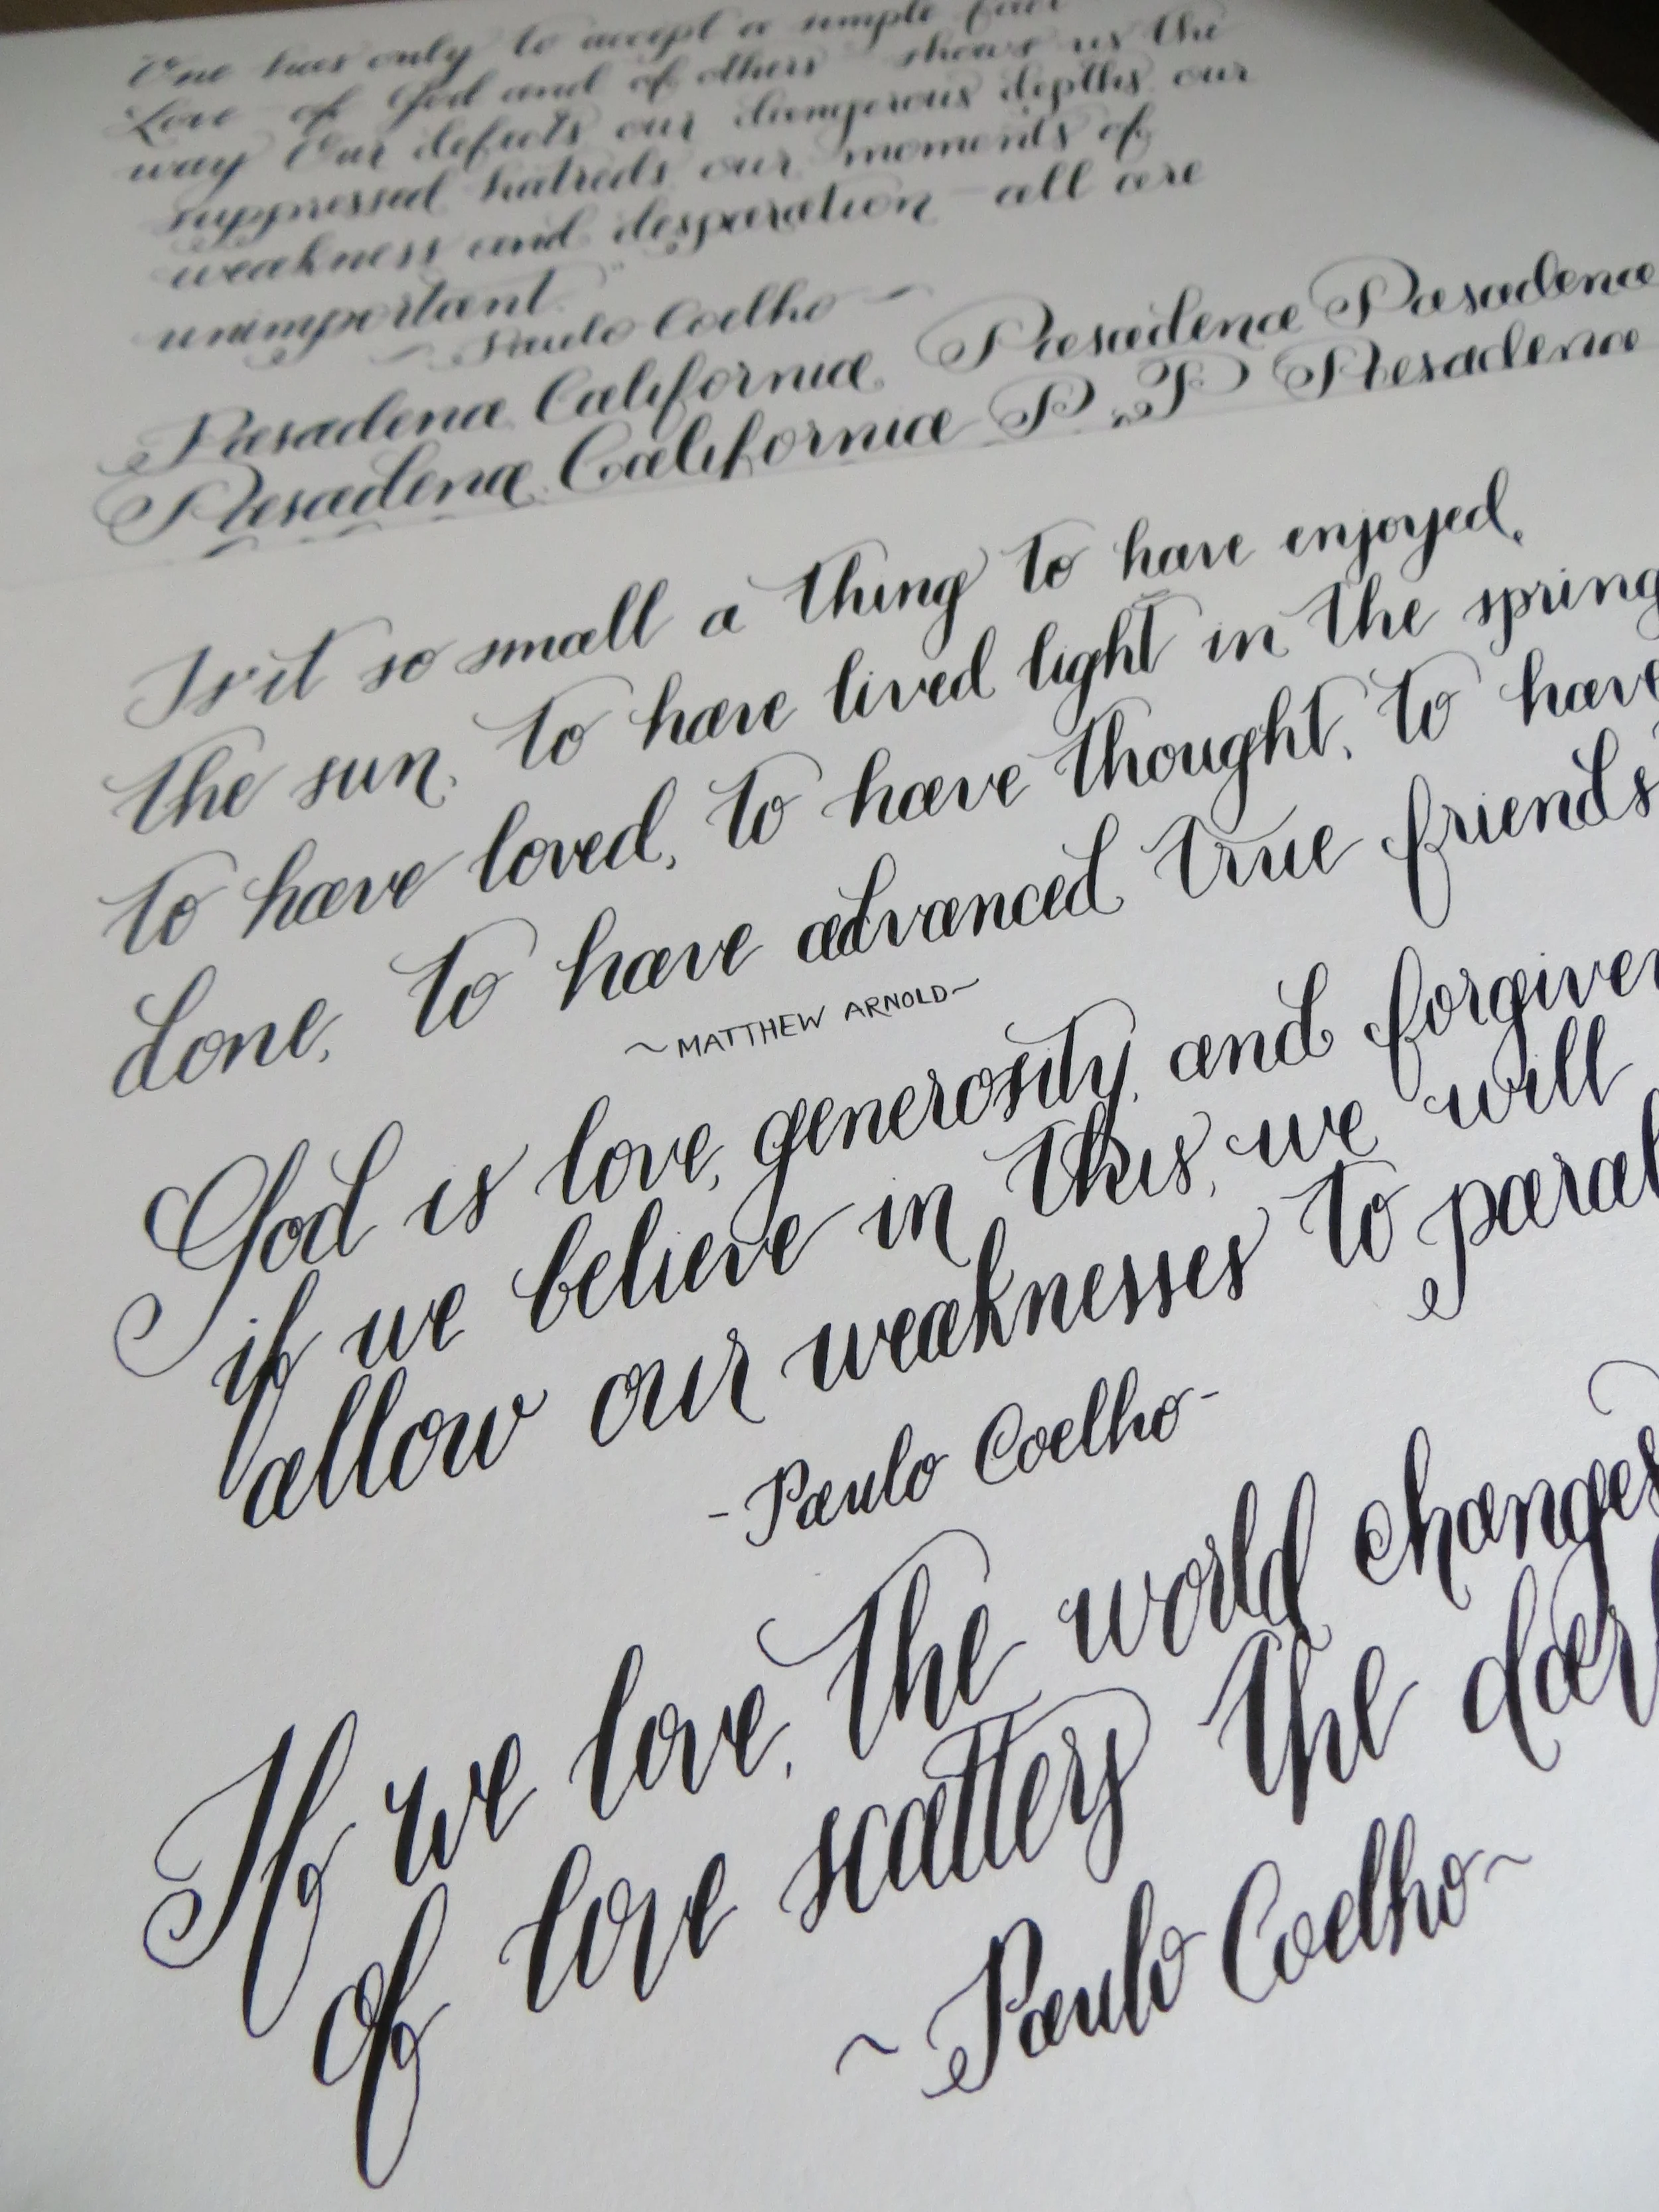 One has only to accept a simple fact
Love of God and of others shows us the
way Our defects our dangerous depths our
suppressed hatreds our moments of
weakness and desparation - all are
unimportant."
~ Paulo Coelho ~
Pasadena California Pasadena Pasadena
Pasadena, California P P Pasadena
Is it so small a thing to have enjoyed,
the sun, to have lived light in the spring
to have loved, to have thought, to have
done, to have advanced true friends
~MATTHEW ARNOLD~
God is love, generosity, and forgiven
if we believe in this, we will
allow our weaknesses to paral
-Paulo Coelho-
If we love, the world changes
of love scatters the dar
~Paulo Coelho~